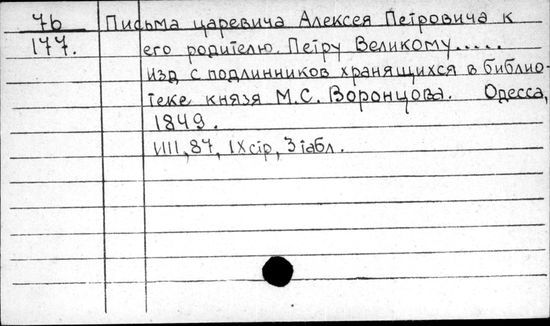 76 Письма царевича Алексея Петровича к
177. его родителю, Петру Великому.....
изд с подлинников хранящихся в библио-
теке князя М.С. Воронцова. Одесса,
1849.
VIII, 87, IX стр, 3 табл.